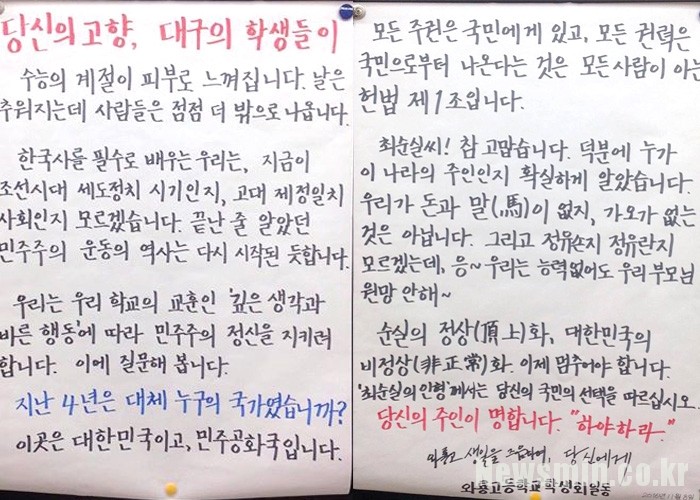 당신의 고향, 대구의 학생들이
수능의 계절이 피부로 느껴집니다. 날은
추워지는데 사람들은 점점 더 밖으로 나옵니다.
한국사를 필수로 배우는 우리는, 지금이
조선시대 세도정치 시기인지, 고대 제정일치
사회인지 모르겠습니다. 끝난 줄 알았던
민주주의 운동의 역사는 다시 시작된 듯합니다.
우리는 우리 학교의 교훈인 '깊은 생각과
바른 행동'에 따라 민주주의 정신을 지키려
합니다. 이에 질문해 봅니다.
지난 4년은 대체 누구의 국가였습니까?
이곳은 대한민국이고, 민주공화국입니다.
모든 주권은 국민에게 있고, 모든 권력은
국민으로부터 나온다는 것은 모든사람이 아는
헌법 제1조입니다.
최순실씨! 참 고맙습니다. 덕분에 누가
이 나라의 주인인지 확실하게 알았습니다.
우리가 돈과 말(馬)이 없지, 가오가 없는
것은 아닙니다. 그리고 정유라인지 정유란지
모르겠는데, 응~ 우리는 능력없어도 우리 부모님
원망 안해~
순실의 정상(頂上)화, 대한민국의
비정상(非正常)화. 이제 멈추어야 합니다.
'최순실의 인형'께서는 당신의 국민의 선택을 따르십시오.
당신의 주인이 명합니다. "하야하라."
와룡고 생일을 드음하며, 당신에게
와룡고등학교 학생회일동
newsmin.co.kr